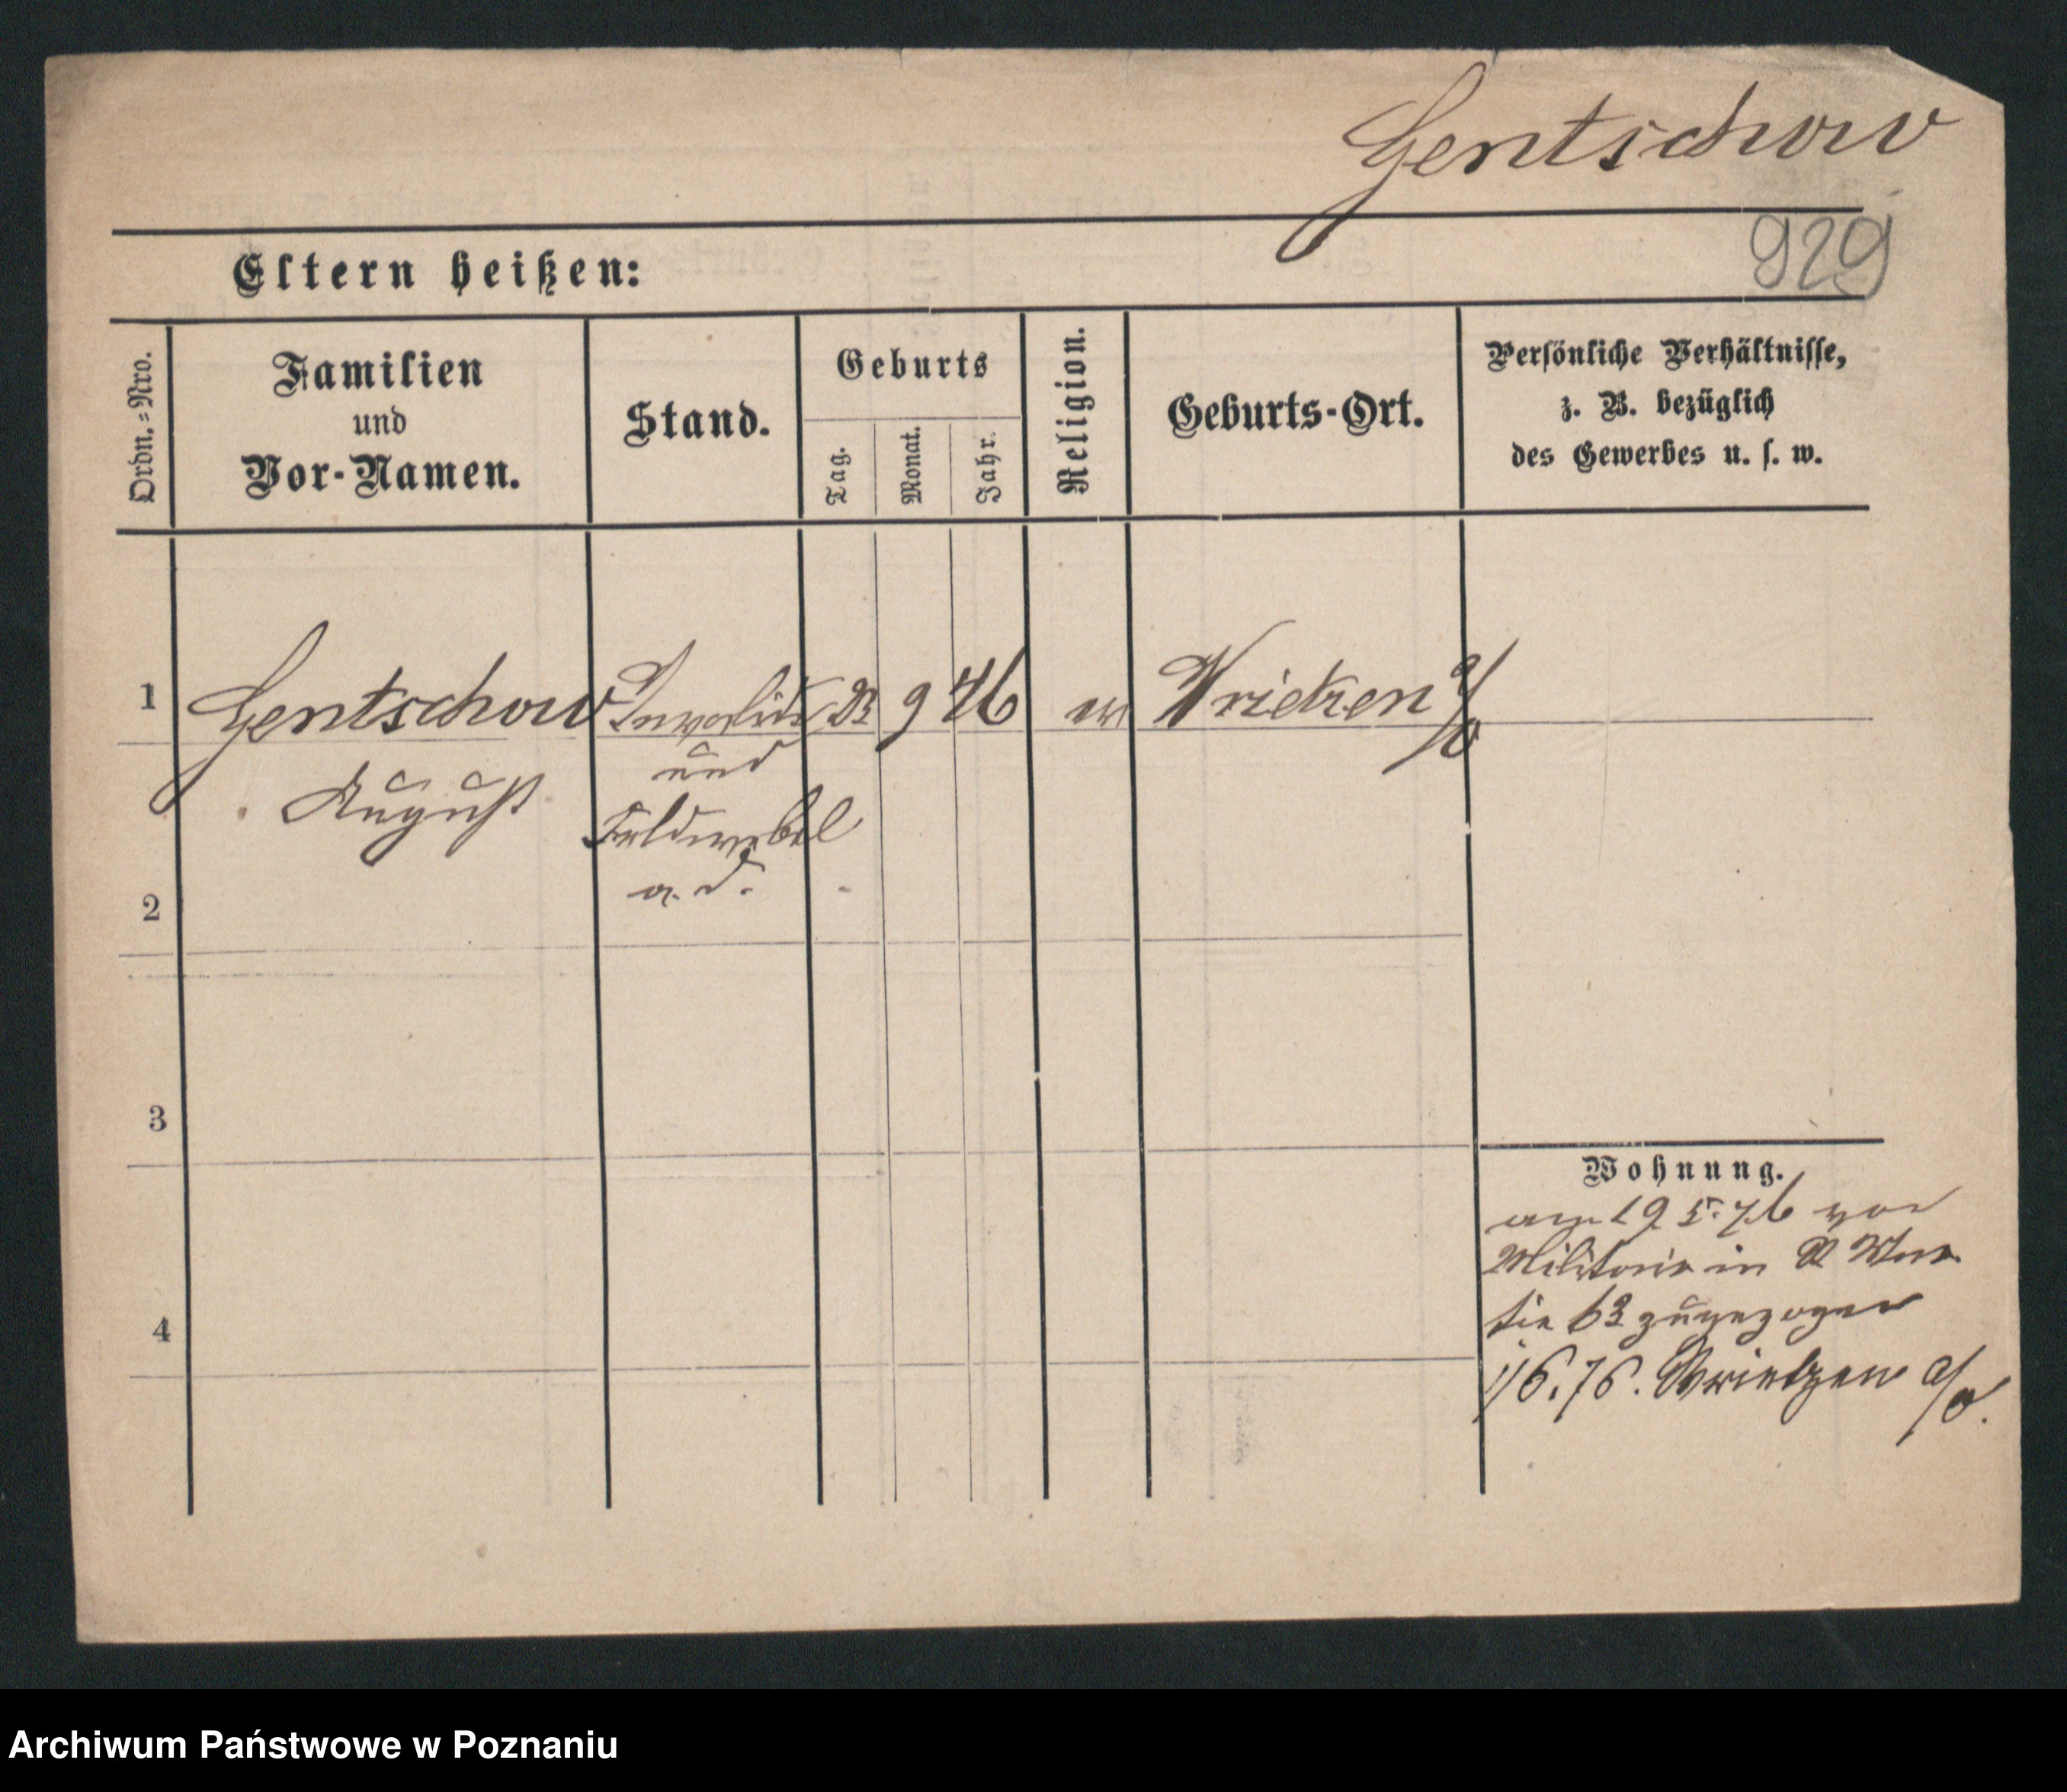 Gentschow
929
Eltern heißen:
Ordn.=Nro.
Familien
und
Vor-Namen.
Stand.
Geburts
Tag.
Monat.
Jahr.
Religion.
Geburts-Ort.
Persönliche Verhältnisse,
z. B. bezüglich
des Gewerbes u. s. w.
1
Gentschow
August
Invalide
und
Feldwebel
a. D.
23
9
46
ev
Wriezen a/O
2
3
4
Wohnung.
am 19 5. 76 von
Militair in
63 zugezogen
1/6. 76. Wrietzen a/O.
Archiwum Państwowe w Poznaniu